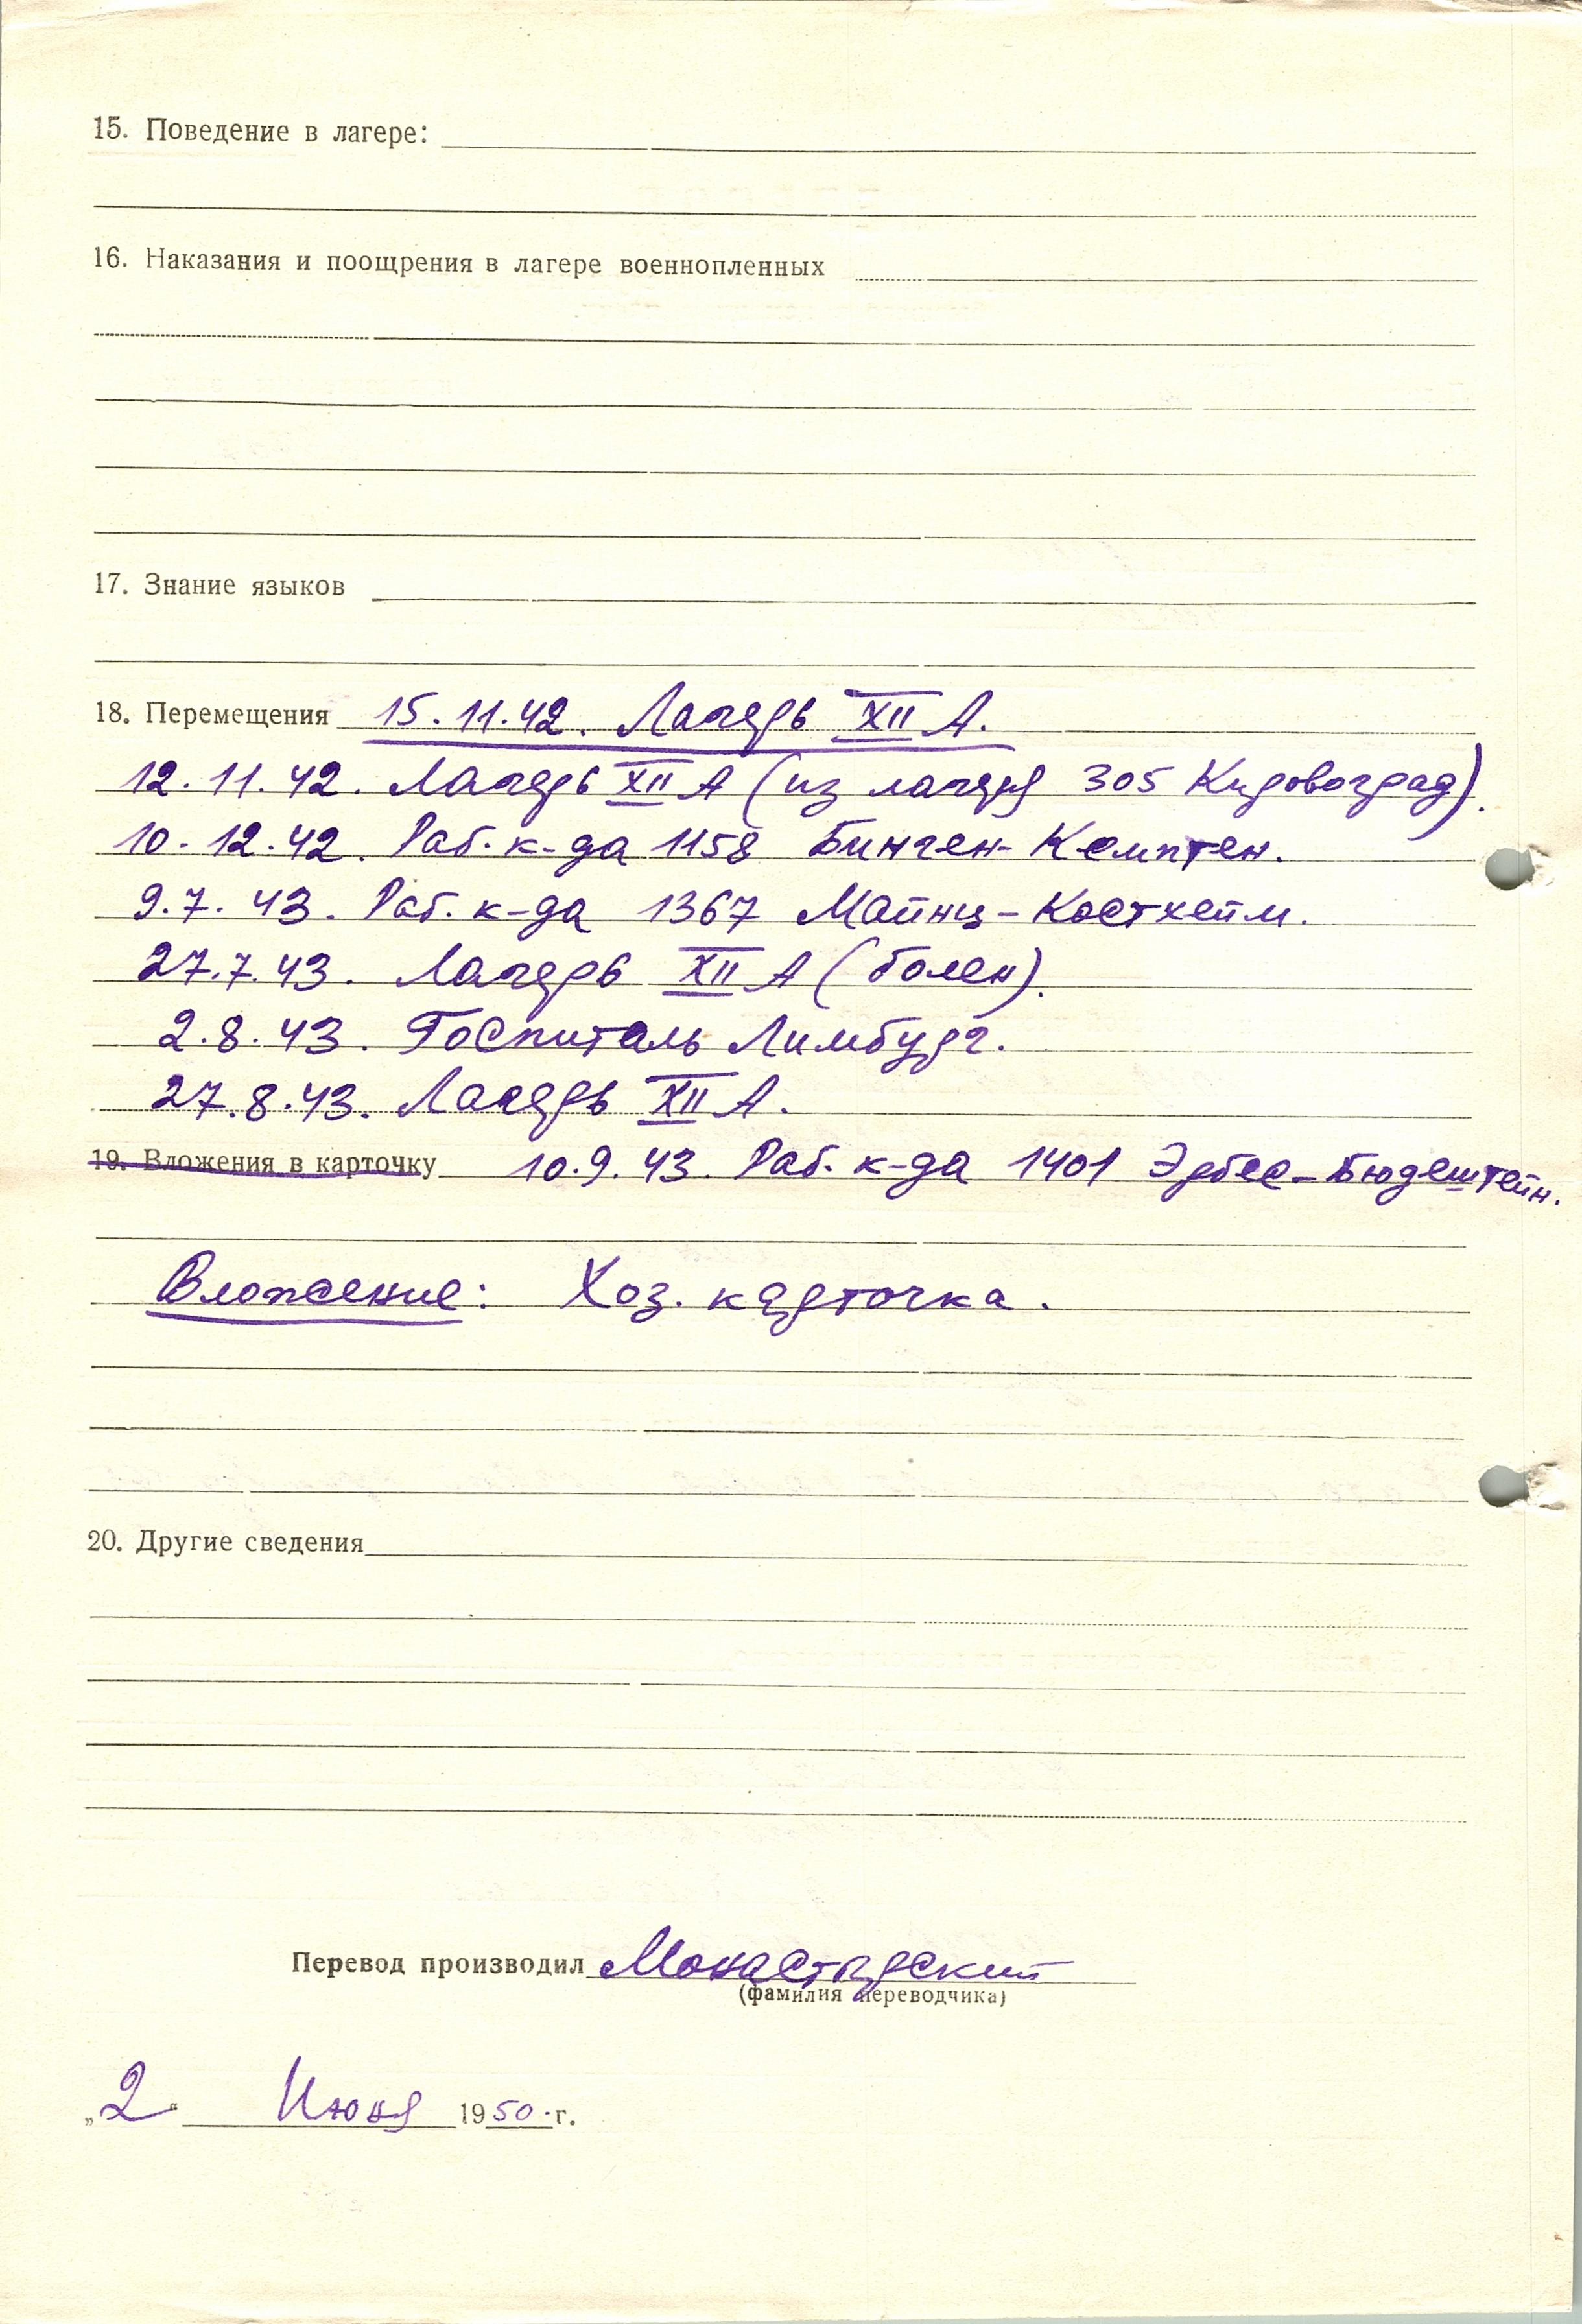 15. Поведение в лагере:
16. Наказания и поощрения в лагере военнопленных
17. Знание языков
18. Перемещения 15.11.42. Лагерь XII А.
12.11.42. Лагерь XII А (из лагеря 305 Кировоград).
10.12.42. Раб. к-да 1158 Бинген-Кемптен.
9.7.43. Раб. к-да 1367 Майнц-Костхейм.
27.7.43. Лагерь XII А (болен).
2.8.43. Госпиталь Лимбург.
27.8.43. Лагерь XII А.
19. Вложения в карточку 10.9.43. Раб. к-да 1401 Эрбес-Бюдештейн.
Вложение: Хоз. карточка.
20. Другие сведения
Перевод производил Монастырский
(фамилия переводчика)
„2“ Июня 1950 г.